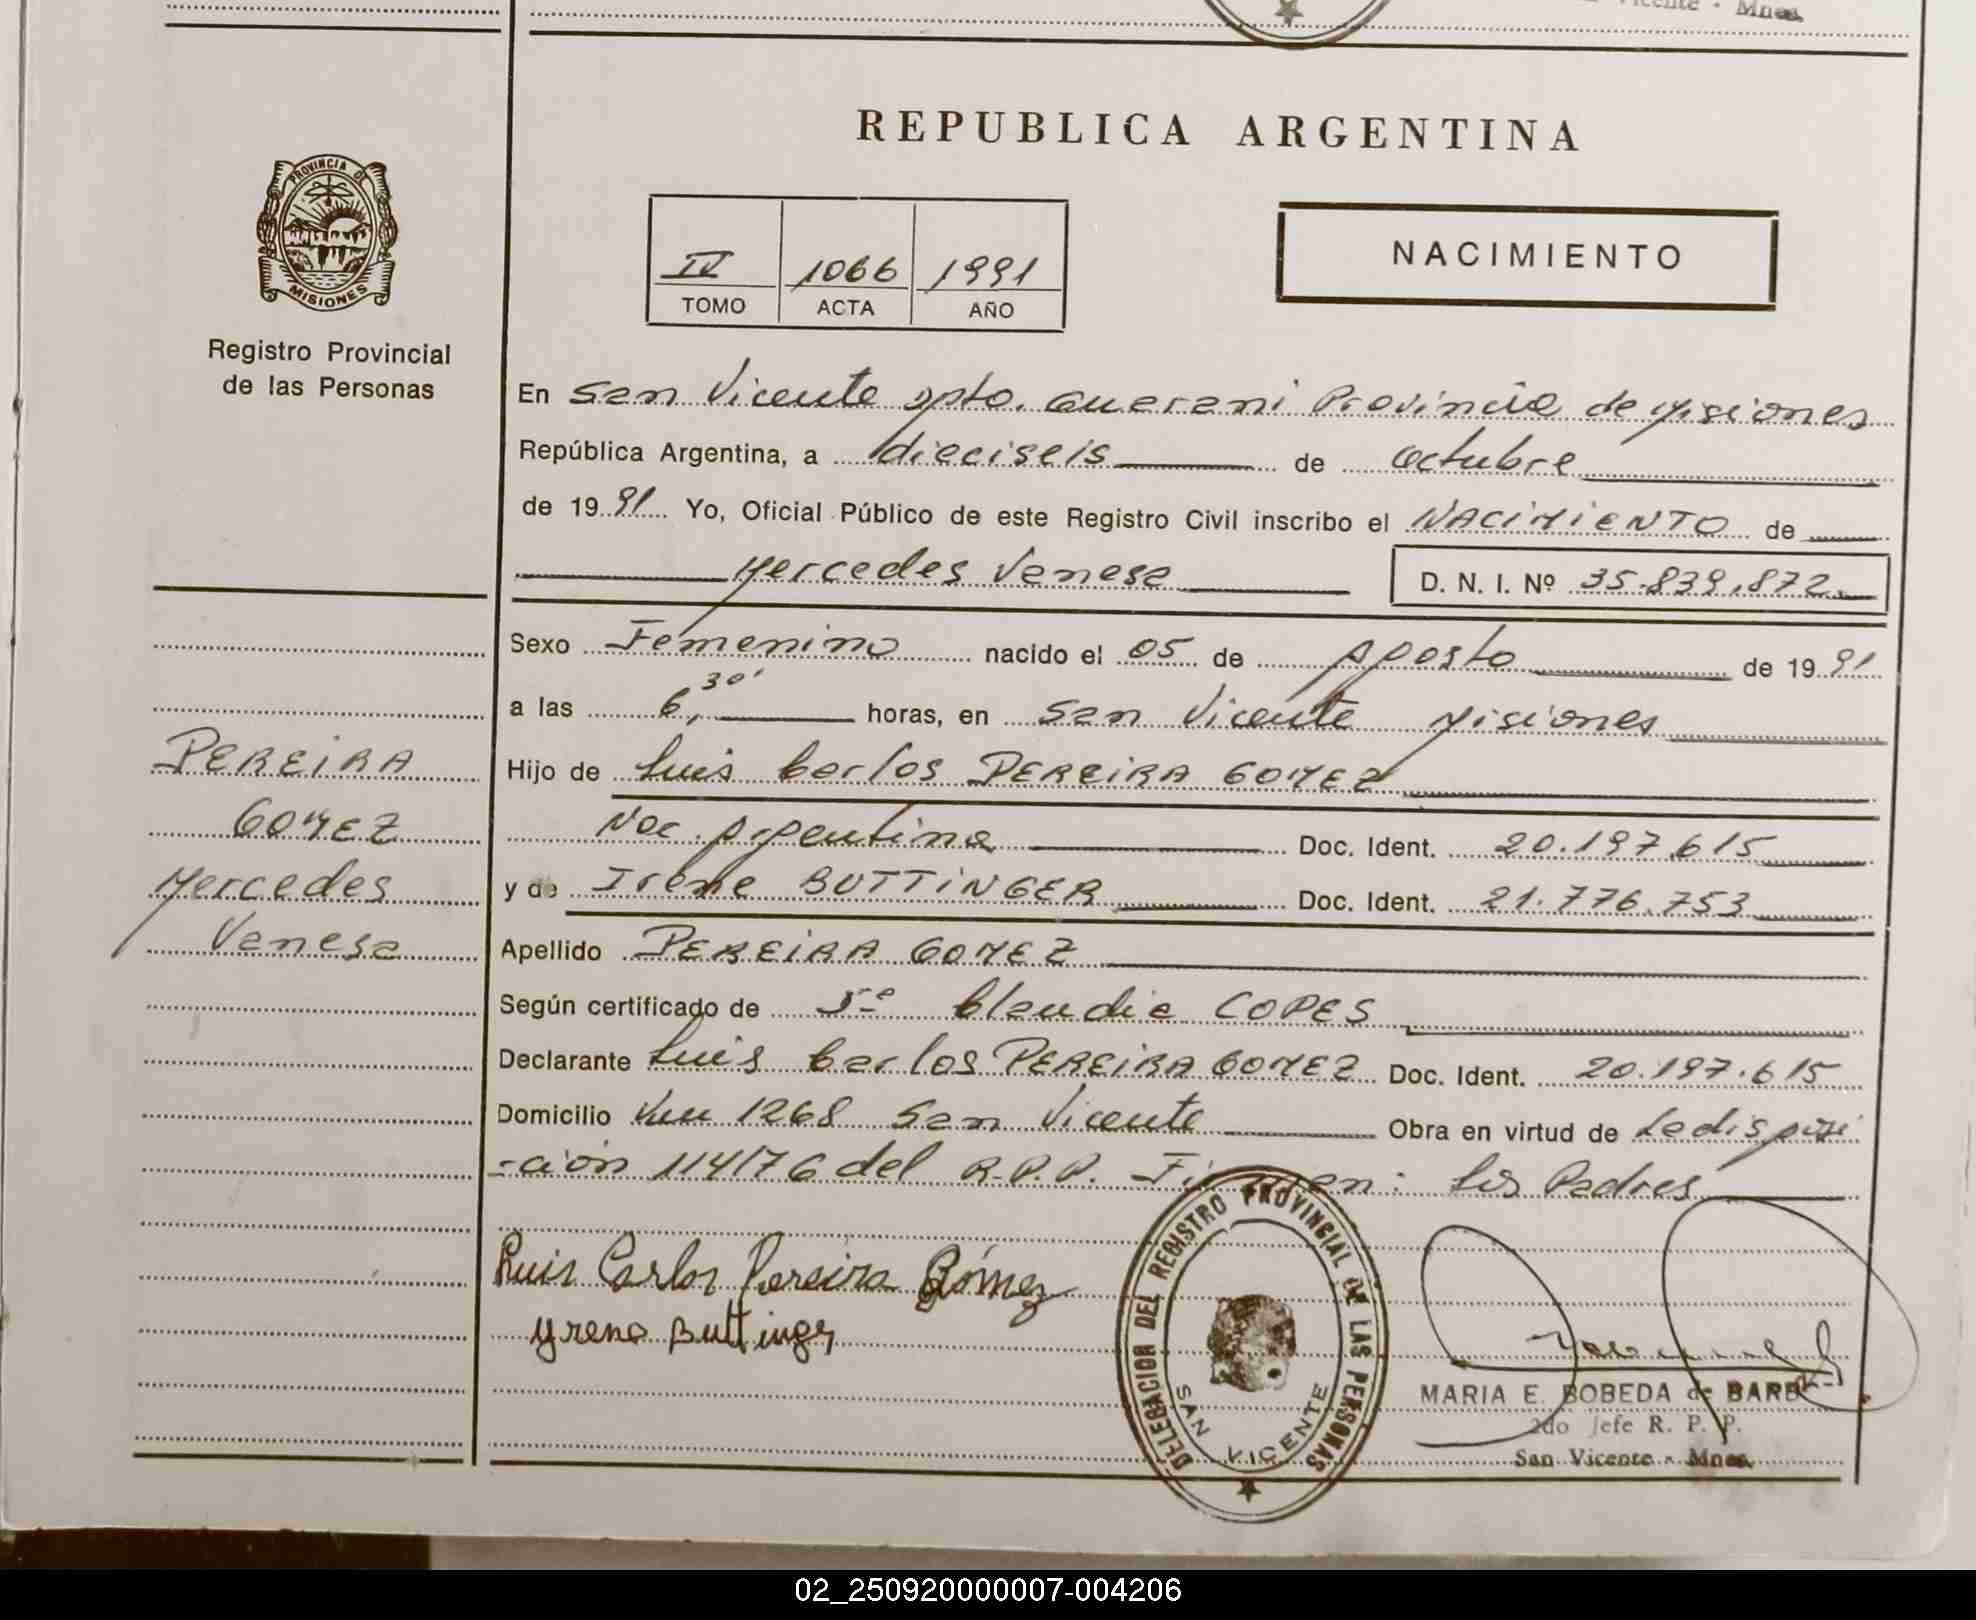 Vicente - Mnes.
PROVINCIA DE
MISIONES
Registro Provincial
de las Personas
PEREIRA
GOMEZ
Mercedes
Vanesa
REPUBLICA ARGENTINA
IV 1066 1991
TOMO ACTA AÑO
NACIMIENTO
En San Vicente Dpto. Guarani Provincia de Misiones
República Argentina, a dieciseis de octubre
de 1991 Yo, Oficial Público de este Registro Civil inscribo el NACIMIENTO de
Mercedes Vanesa D. N. I. Nº 35.839.872
Sexo Femenino nacido el 05 de Agosto de 1991
a las 6,30' horas, en San Vicente Misiones
Hijo de Luis Carlos PEREIRA GOMEZ
Nac. Argentina Doc. Ident. 20.197.615
y de Irene BUTTINGER Doc. Ident. 21.776.753
Apellido PEREIRA GOMEZ
Según certificado de Claudia COPES
Declarante Luis Carlos PEREIRA GOMEZ Doc. Ident. 20.197.615
Domicilio Km 1268 San Vicente Obra en virtud de La disposi
-ción 114/76 del R.P.P. Firman: Los Padres
Luis Carlos Pereira Gómez
Yrene Buttinger
DELEGACION DEL REGISTRO PROVINCIAL DE LAS PERSONAS
SAN VICENTE
MARIA E. BOBEDA de
2do Jefe R. P. P.
San Vicente - Mnes.
02_250920000007-004206